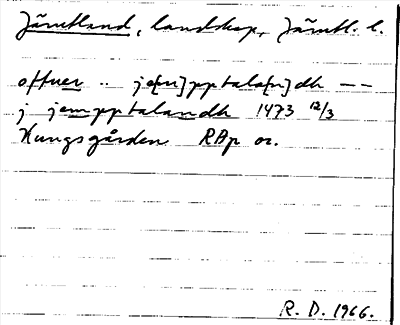 Jämtland, landskap, Jämtl. l.
offuer .. je[m]pptala[n]dh --
j jempptalandh 1473 12/3
Kungsgården RAp or.
R. D. 1966.